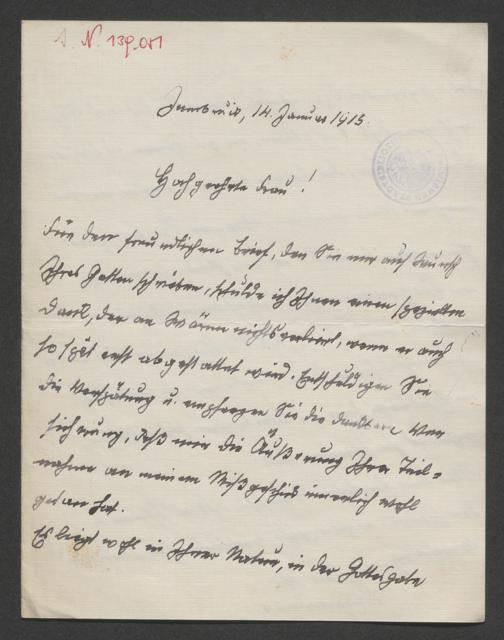 I. N. 139.051
Innsbruck, 14. Januar 1915.
Hochgeehrte Frau!
Für den freundlichen Brief, den Sie mir auf Wunsch
Ihres Gatten schrieben, schulde ich Ihnen einen speziellen
Dank, der an Wärme nichts verliert, wenn er auch
so spät erst abgestattet wird. Entschuldigen Sie
die Verspätung u. empfangen Sie die dankbare Ver-
sicherung, daß mir die Äußerung Ihrer Teil-
nahme an meinem Mißgeschick innerlich wohl
getan hat.
Es liegt wohl in Ihrer Natur, in der Gottesgabe